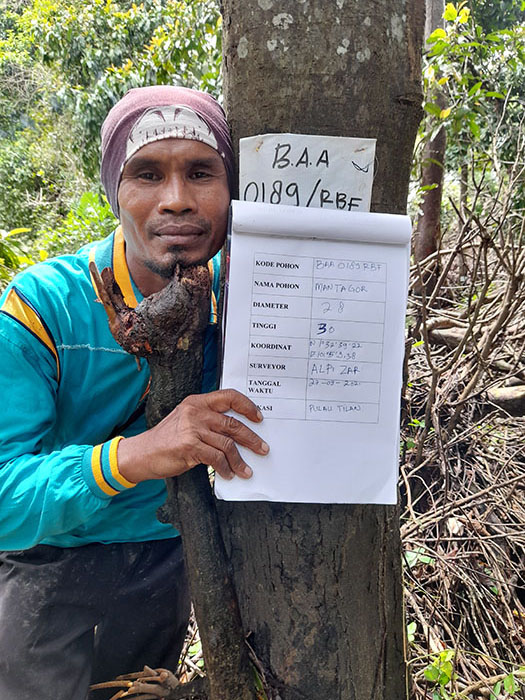 B.A.A
0189/RBF
KODE POHON BAA 0189 RBF
NAMA POHON MANTAGOR
DIAMETER 28
TINGGI 30
KOORDINAT
SURVEYOR ALPI ZAR
TANGGAL
WAKTU
PULAU TILAN